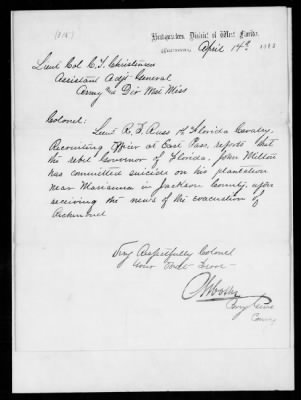 (315)
Headquarters, District of West Florida,
Barrancas, April 14th 1865
Lieut Col C. T. Christensen
Assistant Adjt General
Army and Div West Miss
Colonel:
Lieut R. F. Russ 1st Florida Cavalry,
Recruiting Officer at East Pass, reports that
the rebel Governor of Florida, John Milton
has committed suicide on his plantation
near Marianna in Jackson County, upon
receiving the news of the evacuation of
Richmond
Very Respectfully Colonel
Your Obdt Servt
Asboth
Brig Genl
Comg